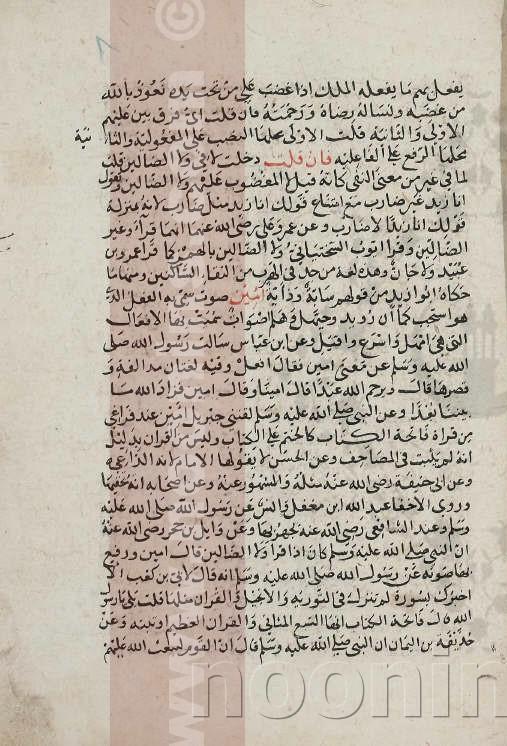 يفعل بهم ما يفعله الملك اذا غضب على من تحت يده نعوذ بالله
من غضبه ونساله رضاه ورحمته فان قلت اى فرق بين عليهم
الاولى والثانية قلت الاولى محلها النصب على المفعولية والثا
نية
محلها الرفع على الفاعلية فان قلت دخلت لا فى ولا الضالين قلت
لما فى غير من معنى النفى كانه قيل لا المغضوب عليهم ولا الضالين وتقول
انا زيد غير ضارب مع امتناع قولك انا زيد مثل ضارب لانه بمنزلة
قولك انا زيدا لا ضارب وعن عمر وعلى رضى الله عنهما انهما قرآ وغير
الضالين وقرا ايوب السختيانى ولا الضالين بالهمز كما قرا عمرو بن
عبيد ولا جان وهذه لغة من جد فى الهرب من التقاء الساكنين ومنها ما
حكاه ابو زيد من قولهم شابة ودابة آمين صوت سمى به الفعل الذى
هو استجب كما ان رويد وحيهل وهلم اصوات سميت بها الافعال
التى هى امهل واسرع واقبل وعن ابن عباس سالت رسول الله صلى
الله عليه وسلم عن معنى امين فقال افعل وفيه لغتان مد الفه و
قصرها قال ويرحم الله عبدا قال امينا وقال امين فزاد الله ما
بيننا بعدا وعن النبى صلى الله عليه وسلم لقننى جبريل امين عند فراغى
من قراة فاتحة الكتاب كالختم على الكتاب وليس من القران بدليل
انه لم يثبت فى المصاحف وعن الحسن لا يقولها الامام لانه الداعى
وعن ابى حنيفة رضى الله عنه مثله والمشهور عنه وعن اصحابه انه يخفيها
وروى الاخفا عبد الله ابن مغفل وانس عن رسول الله صلى الله عليه
وسلم وعند الشافعى رضى الله عنه يجهر بها وعن وايل بن حجر رضى الله عنه
ان النبى صلى الله عليه وسلم كان اذا قرا ولا الضالين قال امين ورفع
بها صوته عن رسول الله صلى الله عليه وسلم انه قال لابى بن كعب الا
اخبرك بسورة لم ينزل فى التورية والانجيل والقران مثلها قلت بلى يارسول
الله قال فاتحة الكتاب انها السبع المثانى والقران العظيم اوتيته وعن
حذيفة بن اليمان ان النبى صلى الله عليه وسلم قال ان القوم ليبعث الله عليهم
noonin